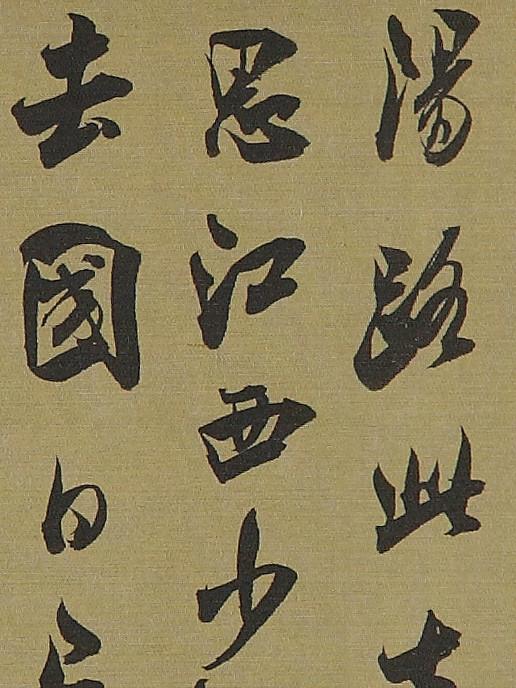 湯路此
思江西少
去國日